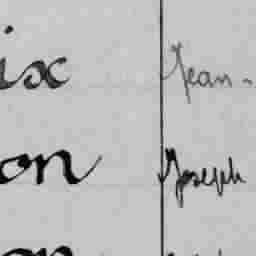 ix Jean-
on Joseph
on